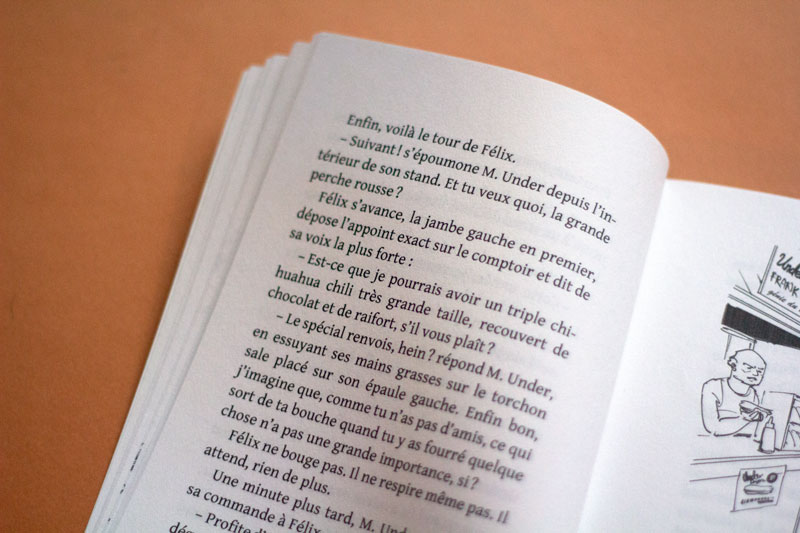 Enfin, voilà le tour de Félix.
– Suivant ! s'époumone M. Under depuis l'in-
térieur de son stand. Et tu veux quoi, la grande
perche rousse ?
Félix s'avance, la jambe gauche en premier,
dépose l'appoint exact sur le comptoir et dit de
sa voix la plus forte :
– Est-ce que je pourrais avoir un triple chi-
huahua chili très grande taille, recouvert de
chocolat et de raifort, s'il vous plaît ?
– Le spécial renvois, hein ? répond M. Under,
en essuyant ses mains grasses sur le torchon
sale placé sur son épaule gauche. Enfin bon,
j'imagine que, comme tu n'as pas d'amis, ce qui
sort de ta bouche quand tu y as fourré quelque
chose n'a pas une grande importance, si ?
Félix ne bouge pas. Il ne respire même pas. Il
attend, rien de plus.
Une minute plus tard, M. Under
sa commande à Félix
– Profite
Unde
FRANK